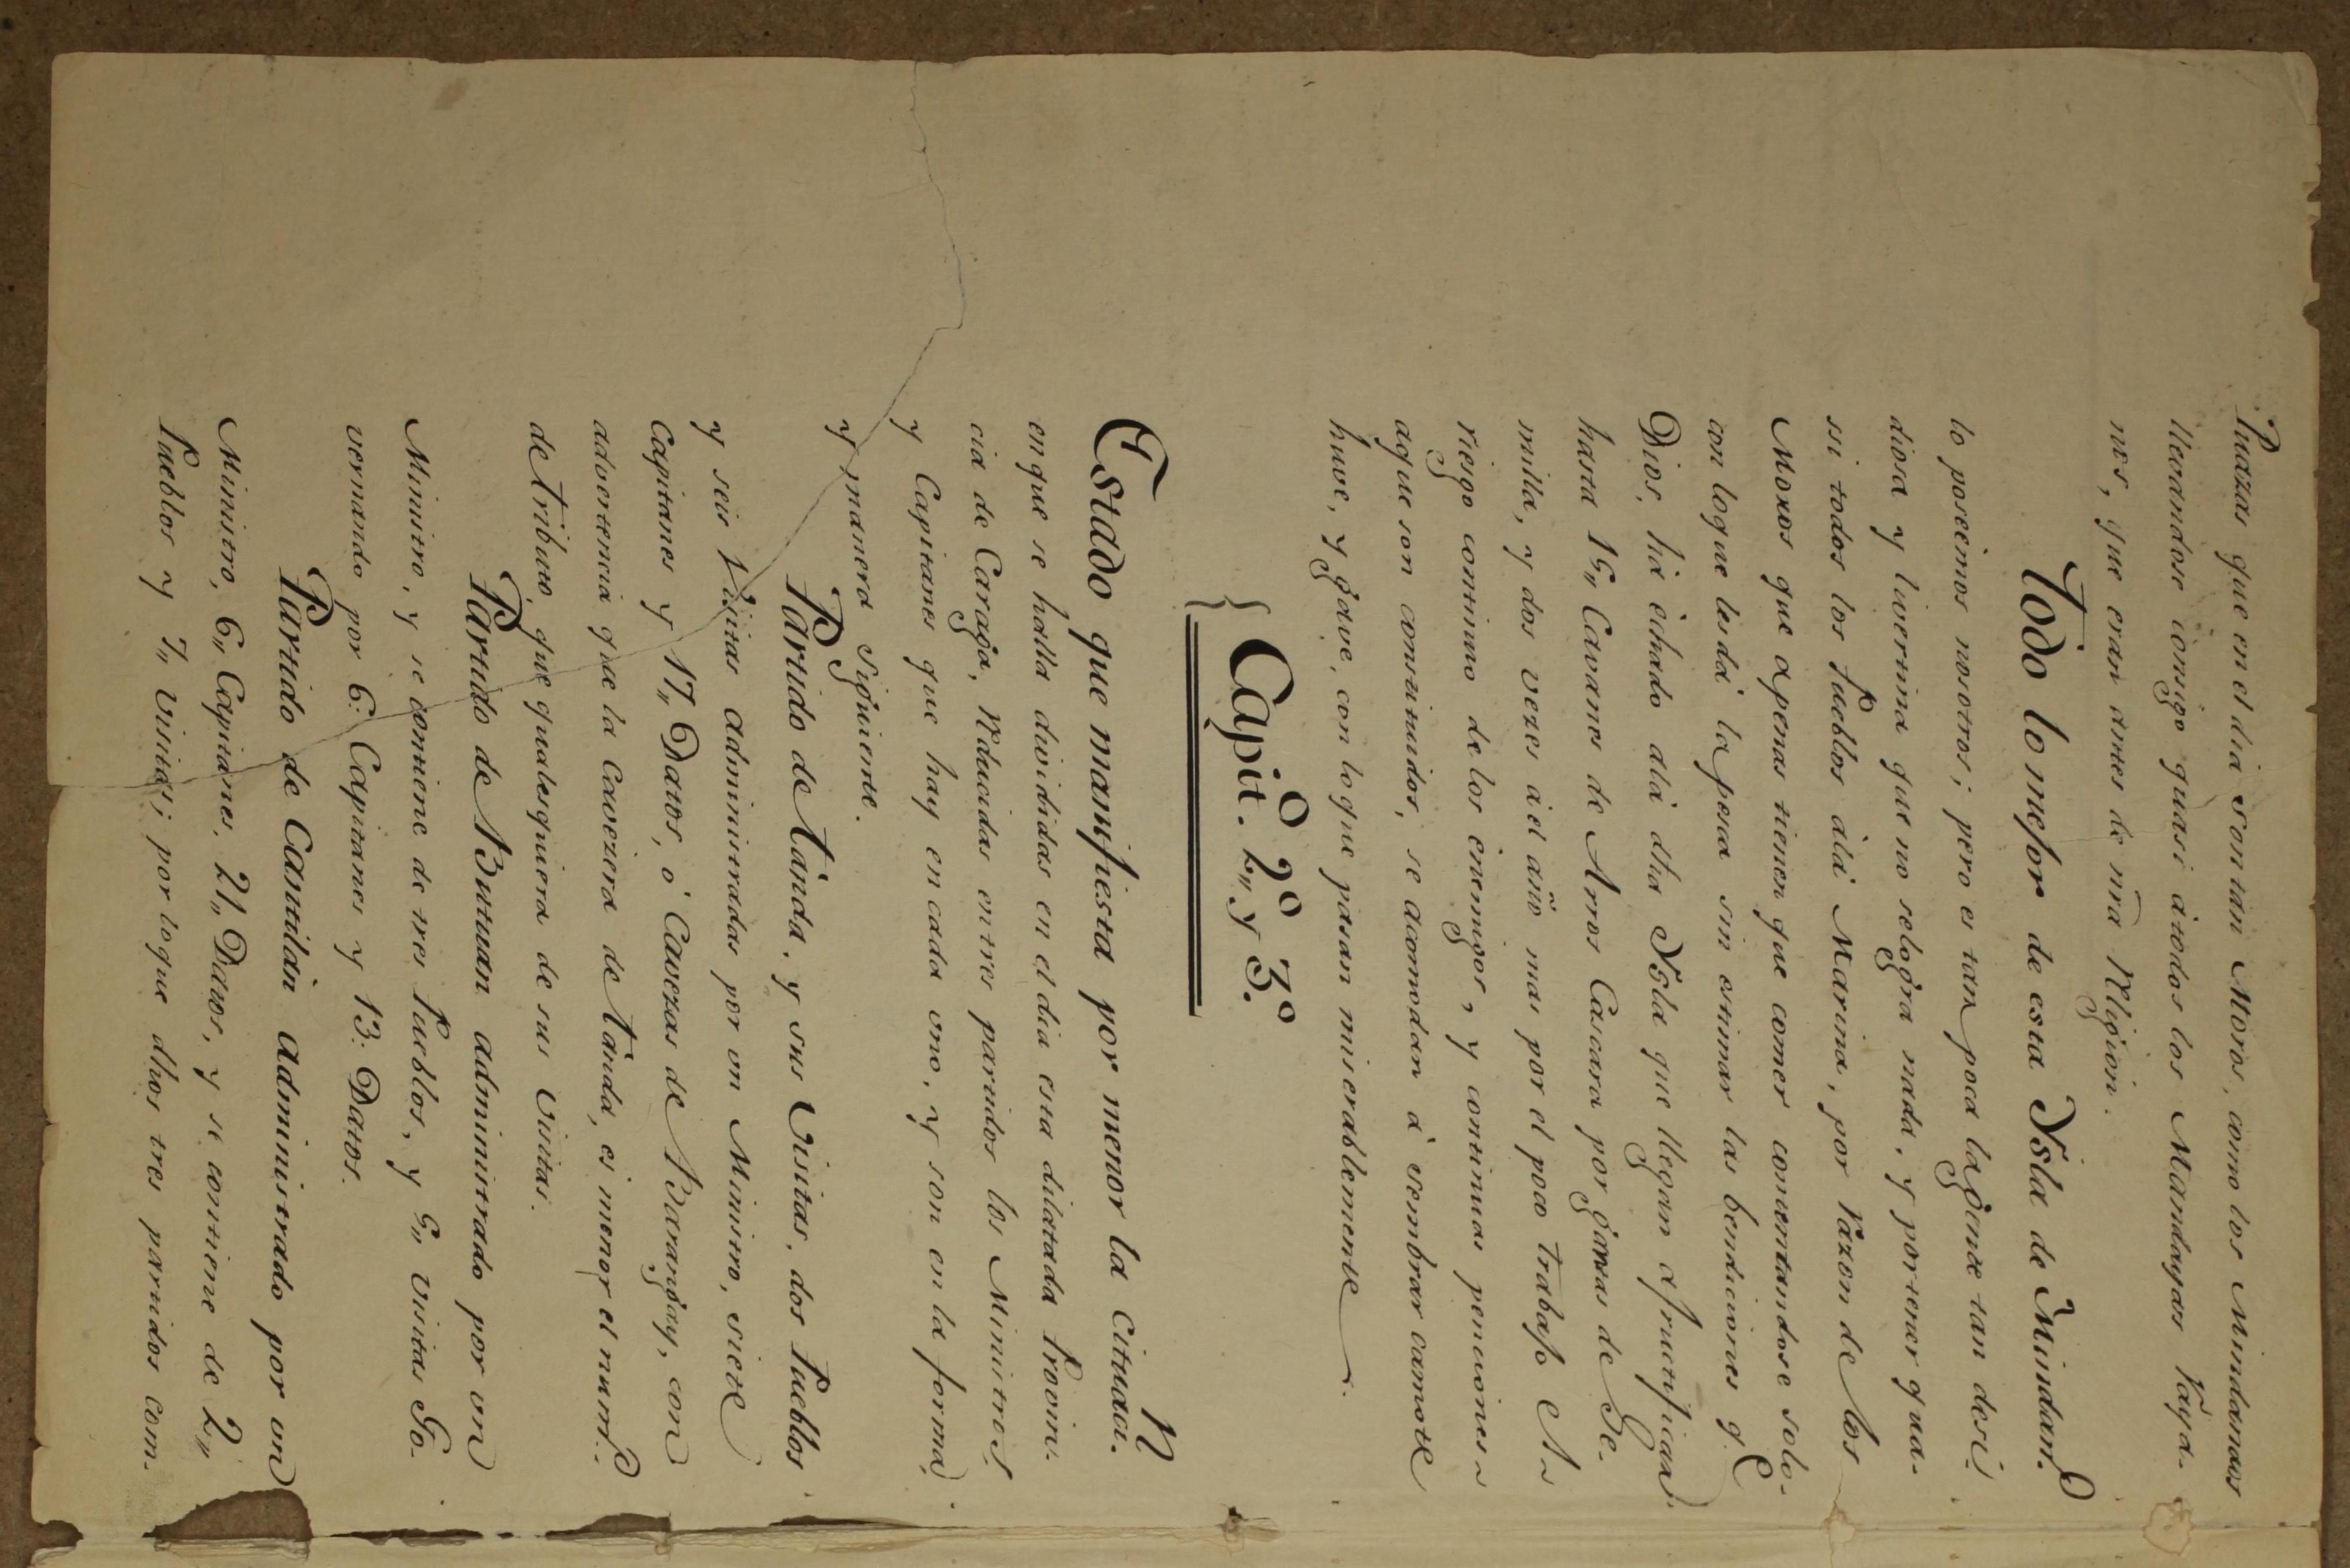 Piratas que en el dia son tan Moros, como los Mindanaos
llevandose consigo quasi á todos los Mandayas Taga-
nos, que eran antes de nrã Religion.
Todo lo mejor de esta Ysla de Mindan.o
lo poseémos nosotros; pero es tan poca la gente tan desi-
diosa y liverina que no se logra nada, y por tener qua-
ssi todos los Pueblos álá Marina, por razon de los
Moros que apenas tienen que comer contentandose solo-
con loque les dá la pesca sin estimar las bendiciones q.e
Dios, há échado álá dha Ysla que llegan a fructificar
hasta 15,, Cavanes de Arros Cascara por gantas de Se-
milla, y dos vezes ál año mas por el poco trabajo
riesgo continuo de los énemigos, y continuas penciones
aque son constituidos, se acomodan á sembrar camote
huve, y gave, con loque pasan miserablemente.
Capit.o 2,,o y 3.o
Estado que manifiesta por menor la Cituaci.n
en que se halla divididas en el dia esta dilatada Provin-
cia de Caraga, reducidas entres partidos los Ministros
y Capitanes que hay en cada uno, y son en la forma
y manera siguiente.
Partido de Tánda, y sus Visitas, dos Pueblos
y seis Visitas administradas por un Ministro, siete
Capitanes y 17,, Datos, ó Cavezas de Barangay, con
advertencia que la Cavezera de Tánda, es menor el num.o
de tributo, que qualesquiera de sus Visitas.
Partido de Butuan administrado por un
Ministro, y se contiene de tres Pueblos, y 5,, Visitas Go-
vernando por 6: Capitanes y 13: Datos.
Partido de Cantilán administrado por un
Ministro, 6,, Capitanes, 21,, Datos, y se contiene de 2,,
Pueblos y 7,, Visitas; por loque dhos tres partidos com-